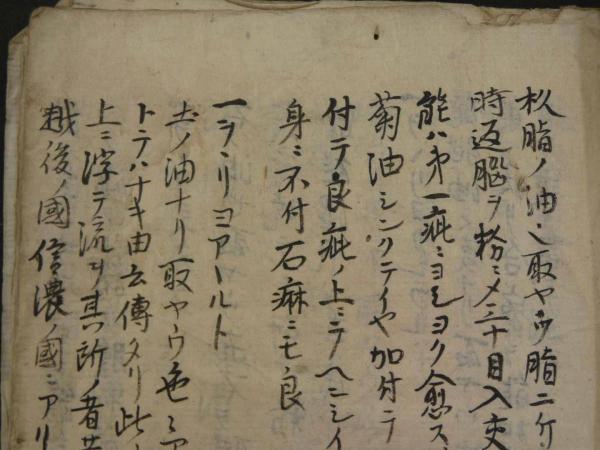 杦脂ノ油ハ取ヤウ脂二斤
時返腦ヲ粉ニメ三十目入交
能ハ第一疵ニヨシヨク愈ス
菊油シンクテイヤ加付テ
付テ良疵ノ上ニテヘニシイ
身ニ不付石麻ニモ良
一ラミリヨアールト
土ノ油ナリ取ヤウ色々ア
トテハナキ由云傳タリ此
上ニ浮テ流ヲ其所ノ者
越後ノ國信濃ノ國ニアリ